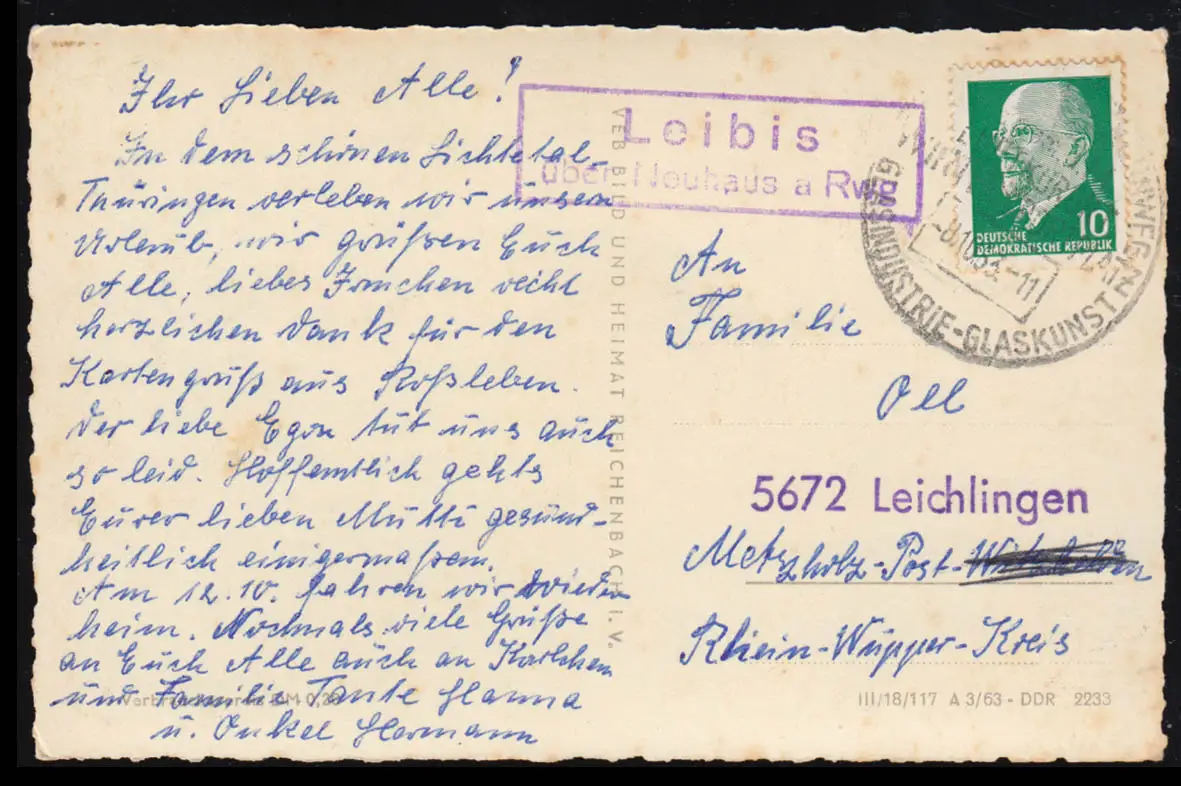 Ihr Lieben Alle!
In dem schönen Lichtetal-
Thüringen verleben wir unsern
Urlaub, wir grüßen Euch
Alle, liebes Irmchen recht
herzlichen Dank für den
Kartengruß aus Roßleben.
Der liebe Egon tut uns auch
so leid. Hoffentlich gehts
Eurer lieben Mutti gesund-
heitlich einigermaßen.
Am 12.10. fahren wir wieder
heim. Nochmals viele Grüße
an Euch Alle auch an Karlchen
und Familie Tante Hanna
u. Onkel Hermann
Verbraucherpreis DM 0,20
VEB BILD UND HEIMAT REICHENBACH I. V.
Leibis
über Neuhaus a Rwg
10
DEUTSCHE
DEMOKRATISCHE REPUBLIK
GLASINDUSTRIE-GLASKUNST
An
Familie
Oel
5672 Leichlingen
Metzholz-Post-
Rhein-Wupper-Kreis
III/18/117 A 3/63 - DDR 2233